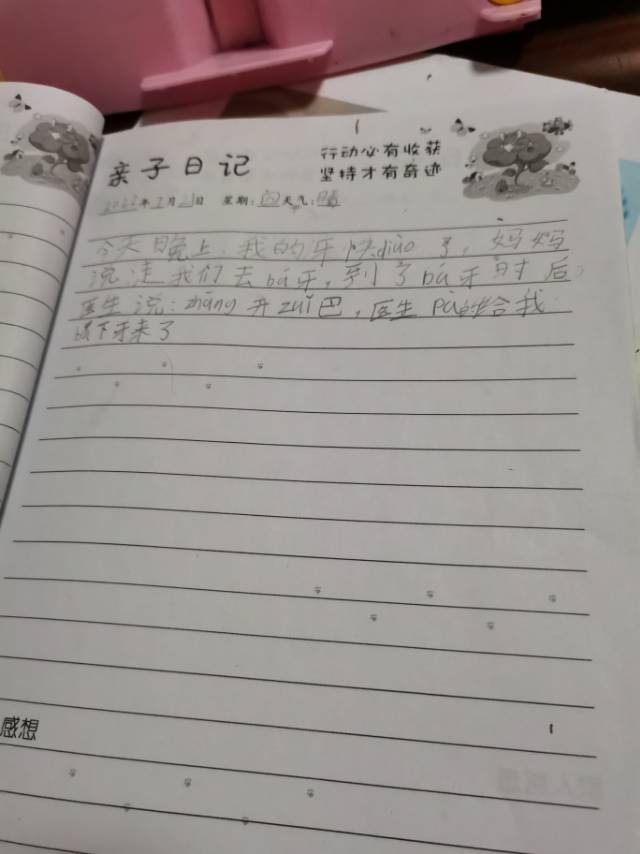 亲子日记
行动必有收获
坚持才有奇迹
2022年7月21日 星期:四 天气:晴
今天晚上,我的牙快diào了,妈妈
说:走我们去bá牙,到了bá牙时后,
医生说:zhāng开zuǐ巴,医生pā的给我
拔下来了
感想